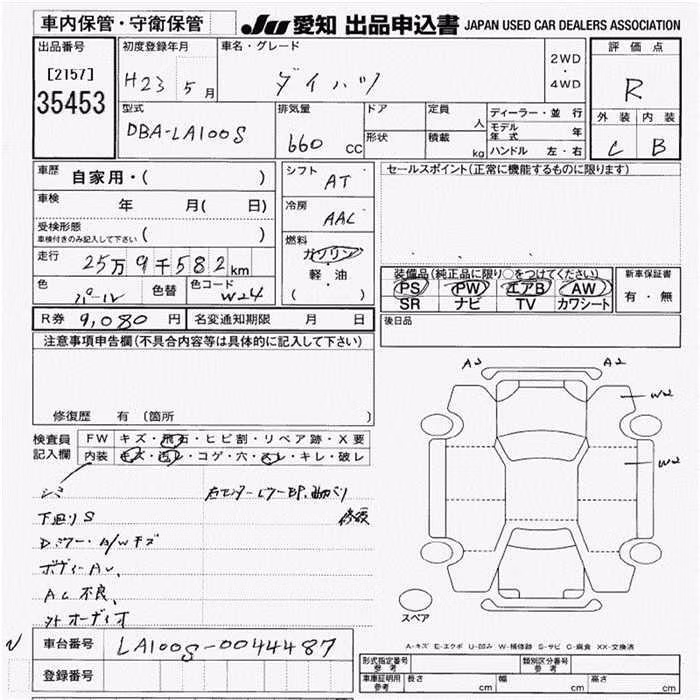 車内保管・守衛保管
JU 愛知 出品申込書 JAPAN USED CAR DEALERS ASSOCIATION
出品番号
[2157]
35453
初度登録年月
H23 5月
車名・グレード
ダイハツ
2WD
・
4WD
評価点
R
外装 内装
C B
型式
DBA-LA100S
排気量
660 CC
ドア
形状
定員
人
積載
kg
ディーラー・並行
モデル年式 年
ハンドル 左・右
車歴
自家用・( )
車検
年 月( 日)
受検形態
車検付きのみ記入して下さい ( )
走行
25万9千582km
色
パール
色替
色コード
W24
シフト
AT
冷房
AAC
燃料
ガソリン
・
軽・油
( )
セールスポイント(正常に機能するものに限ります)
装備品(純正品に限り○をつけてください)
PS PW エアB AW
SR ナビ TV カワシート
新車保証書
有・無
後日品
R券 9,080円 名変通知期限 月 日
注意事項申告欄(不具合内容等は具体的に記入して下さい)
修復歴 有 〔箇所 〕
検査員記入欄
FW キズ・飛石・ヒビ割・リペア跡・X要
内装 キズ・汚レ・コゲ・穴・スレ・キレ・破レ
シミ
下廻りS
Dミラー・A/Wキズ
AC不良、
外オーディオ
A2 A2
W2
W2
スペア
A-キズ E-エクボ U-凹み W-補修跡 S-サビ C-腐食 XX-交換済
車台番号 LA100S-0044487
登録番号
型式指定番号
参考
類別区分番号
参考
車庫証明用
参考
長さ cm 幅 cm 高さ cm